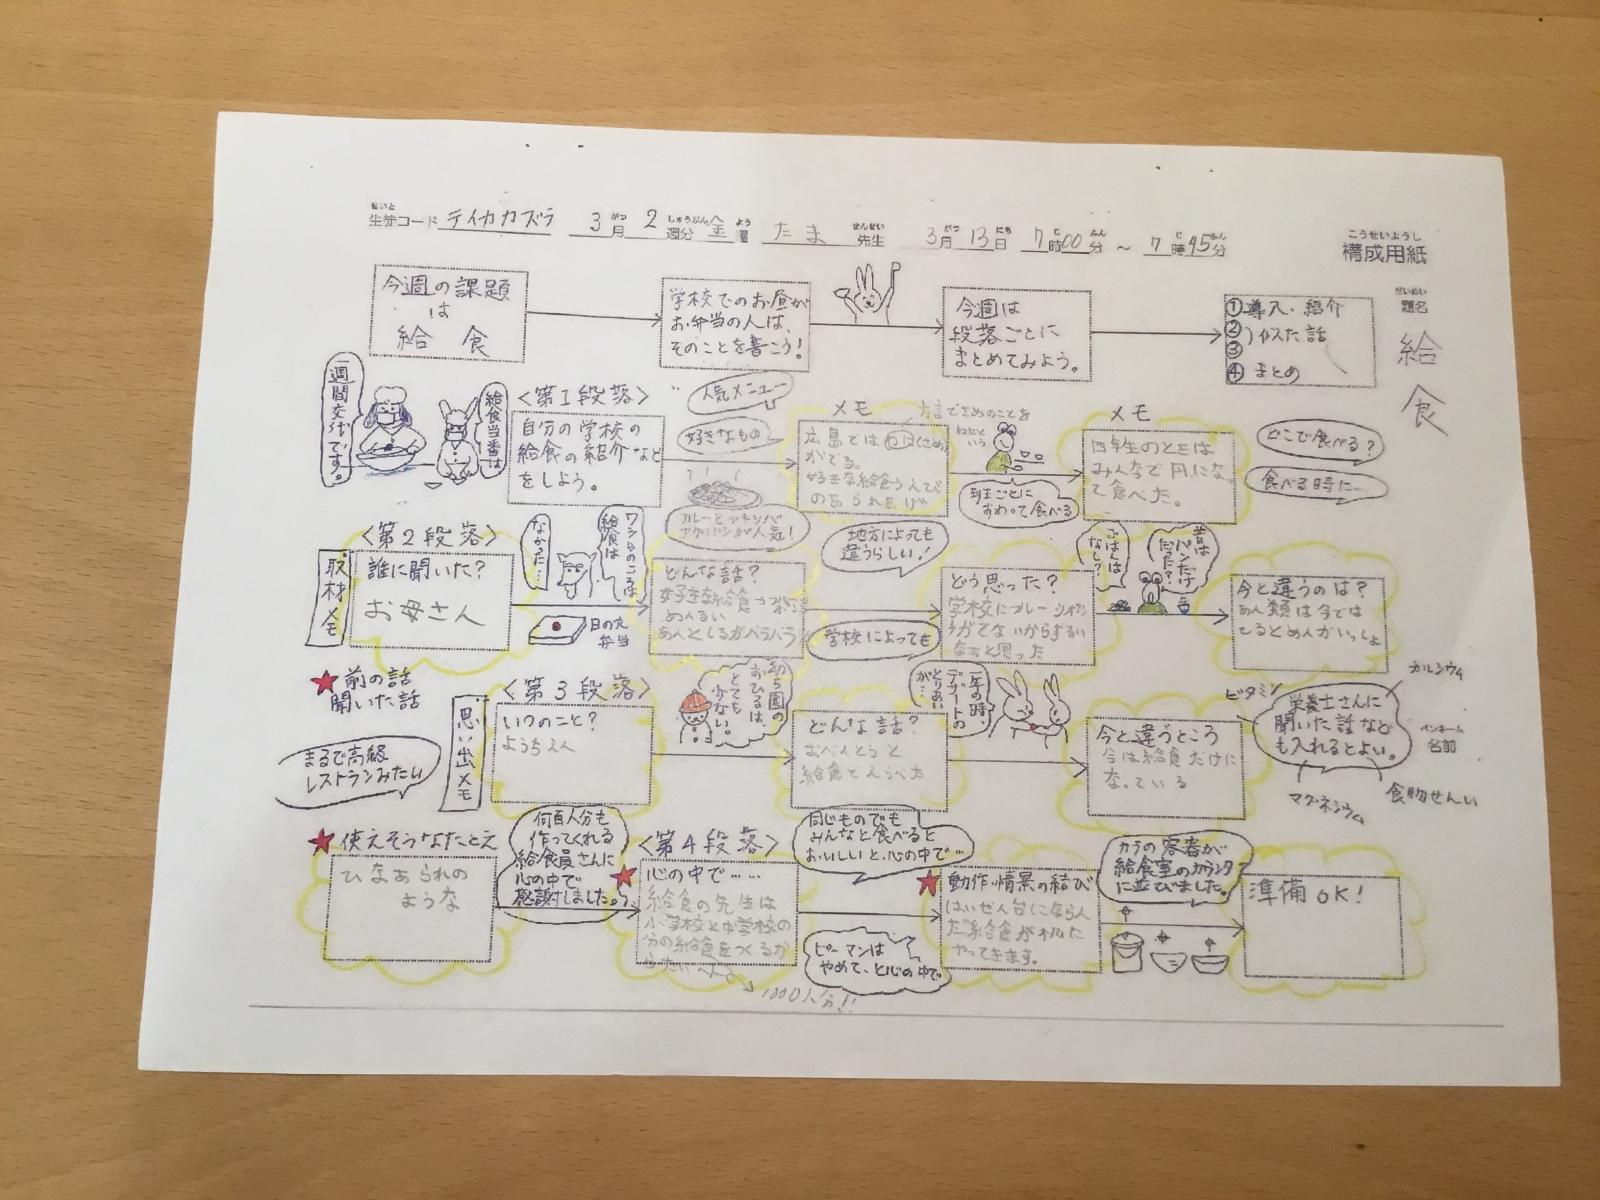 せいと
生徒コード テイカカズラ 3月 2週分 金曜 たま 先生 3月13日 7時00分 ~ 7時45分
こうせいようし
構成用紙
だいめい
題名
給食
今週の課題
は
給食
学校でのお昼が
お弁当の人は、
そのことを書こう!
今週は
段落ごとに
まとめてみよう。
①導入・紹介
②
③
)似た話
④まとめ
一週間交代です。
給食当番は
<第1段落>
自分の学校の
給食の紹介など
をしよう。
人気メニュー
好きなもの
カレーとヤキソバ
アゲパンが人気!
メモ
方言でさめのことを
わにと
いう
広島ではわに(さめ)
がでる。
班ごとに
すわって食べる
メモ
四年生のときは
みんなで円になっ
て食べた。
どこで食べる?
食べる時に…
<第2段落>
取材メモ
誰に聞いた?
お母さん
ワシらのころは
給食は
なかった…
日の丸
弁当
どんな話?
めんるい
めんとしるがバラバラ
地方によっても
違うらしい!
学校によっても
どう思った?
学校に
がでないからずるい
なぁと思った
ごはんは
なし?
昔は
パンだけ
だった?
今と違うのは?
めん類は今では
しるとめんがいっしょ
★前の話
聞いた話
<第3段落>
思い出メモ
いつのこと?
ようちえん
幼ち園の
おひるは、
とても
少ない。
どんな話?
おべんとうと
給食でえらべた
一年の時、
デザートの
とりあい
が…
今と違うところ
今は給食だけに
なっている
カルシウム
ビタミン
栄養士さんに
聞いた話など
も入れるとよい。
マグネシウム
食物せんい
ペンネーム
名前
まるで高級
レストランみたい
★使えそうなたとえ
ひなあられの
ような
何百人分も
作ってくれる
給食員さんに
心の中で
感謝しました。
<第4段落>
★心の中で……
給食の先生は
小学校と中学校の
分の給食をつくるか
らたいへんだ
1000人分!!
同じものでも
みんなと食べると
おいしいと、心の中で…
ピーマンは
やめて、と心の中で
★動作・情景の結び
はいぜん台にならん
だ給食が机に
やってきます。
カラの容器が
給食室のカウンタ
に並びました。
準備OK!